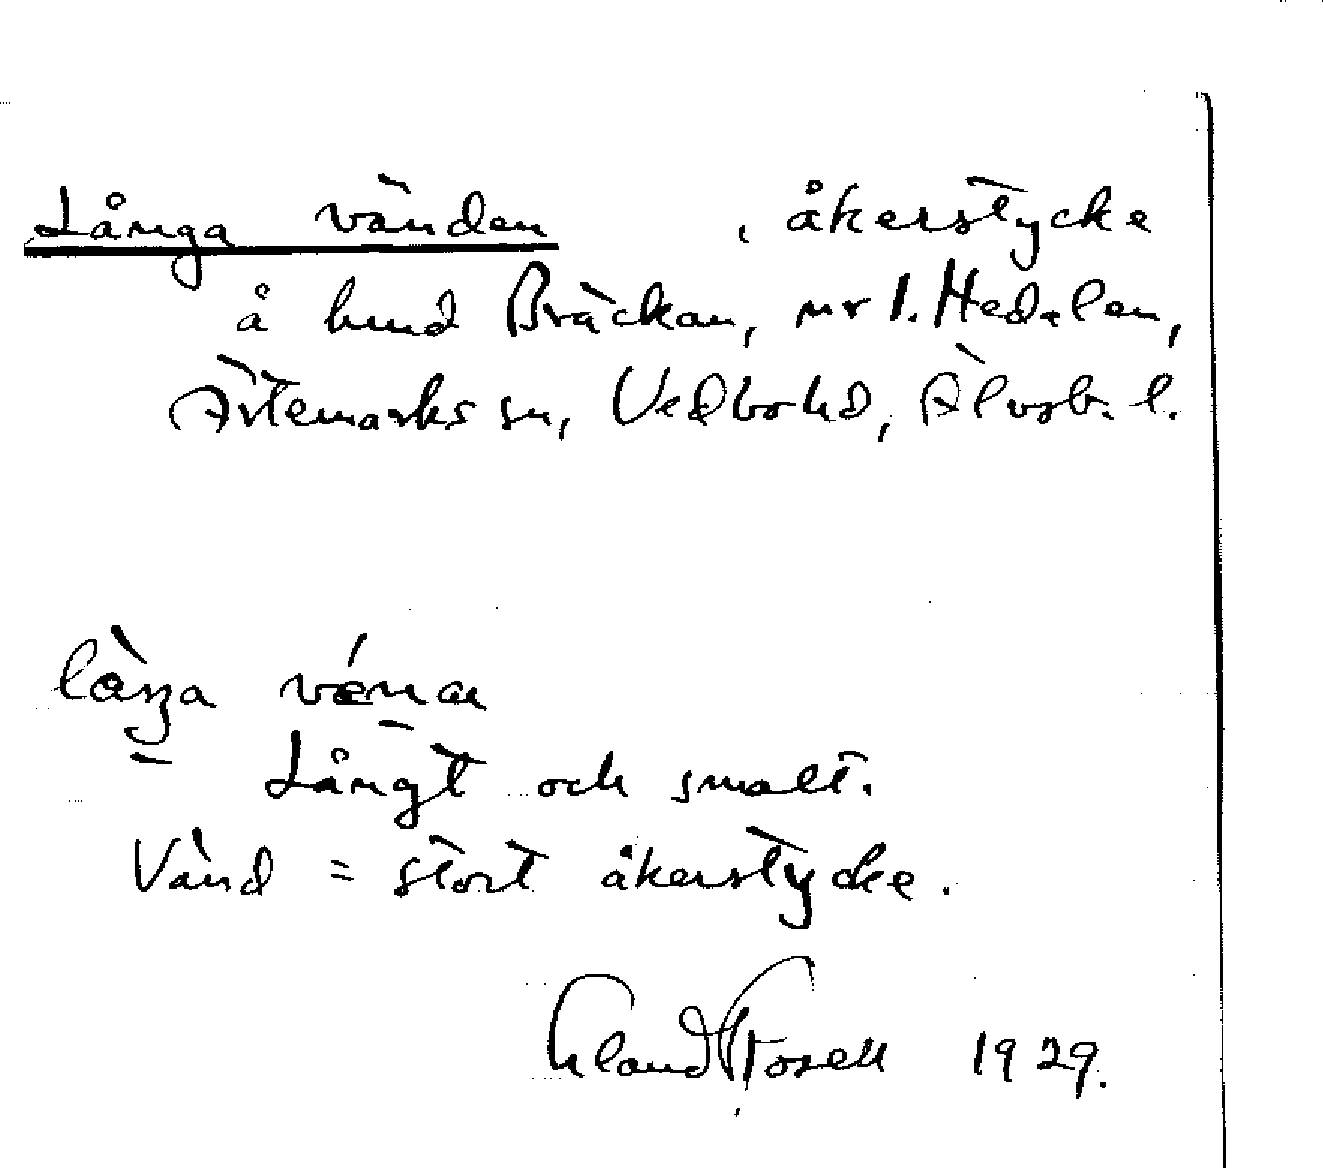 Långa vänden, åkerstycke
å hmd Bräckan, nr 1. Hedalen,
Ärtemarks sn, Vedbo hd, Älvsb. l.
låŋa vénan
Långt och smalt.
Vänd = stort åkerstycke.
Erland Rosell 1929.